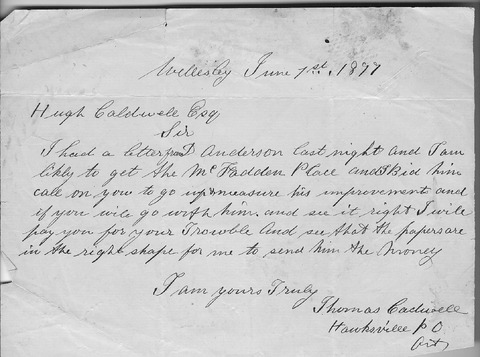 Wellesley June 1st 1897
Hugh Caldwell Esq
Sir
I had a letter from D Anderson last night and I am
likely to get the Mc Fadden Place and I bid him
call on you to go up & measure his improvement and
if you wile go with him. and see it right I wile
pay you for your Trowble And see that the papers are
in the right shape for me to send him the Money
I am yours Truly
Thomas Cadwell
Hawksville P O
Ont